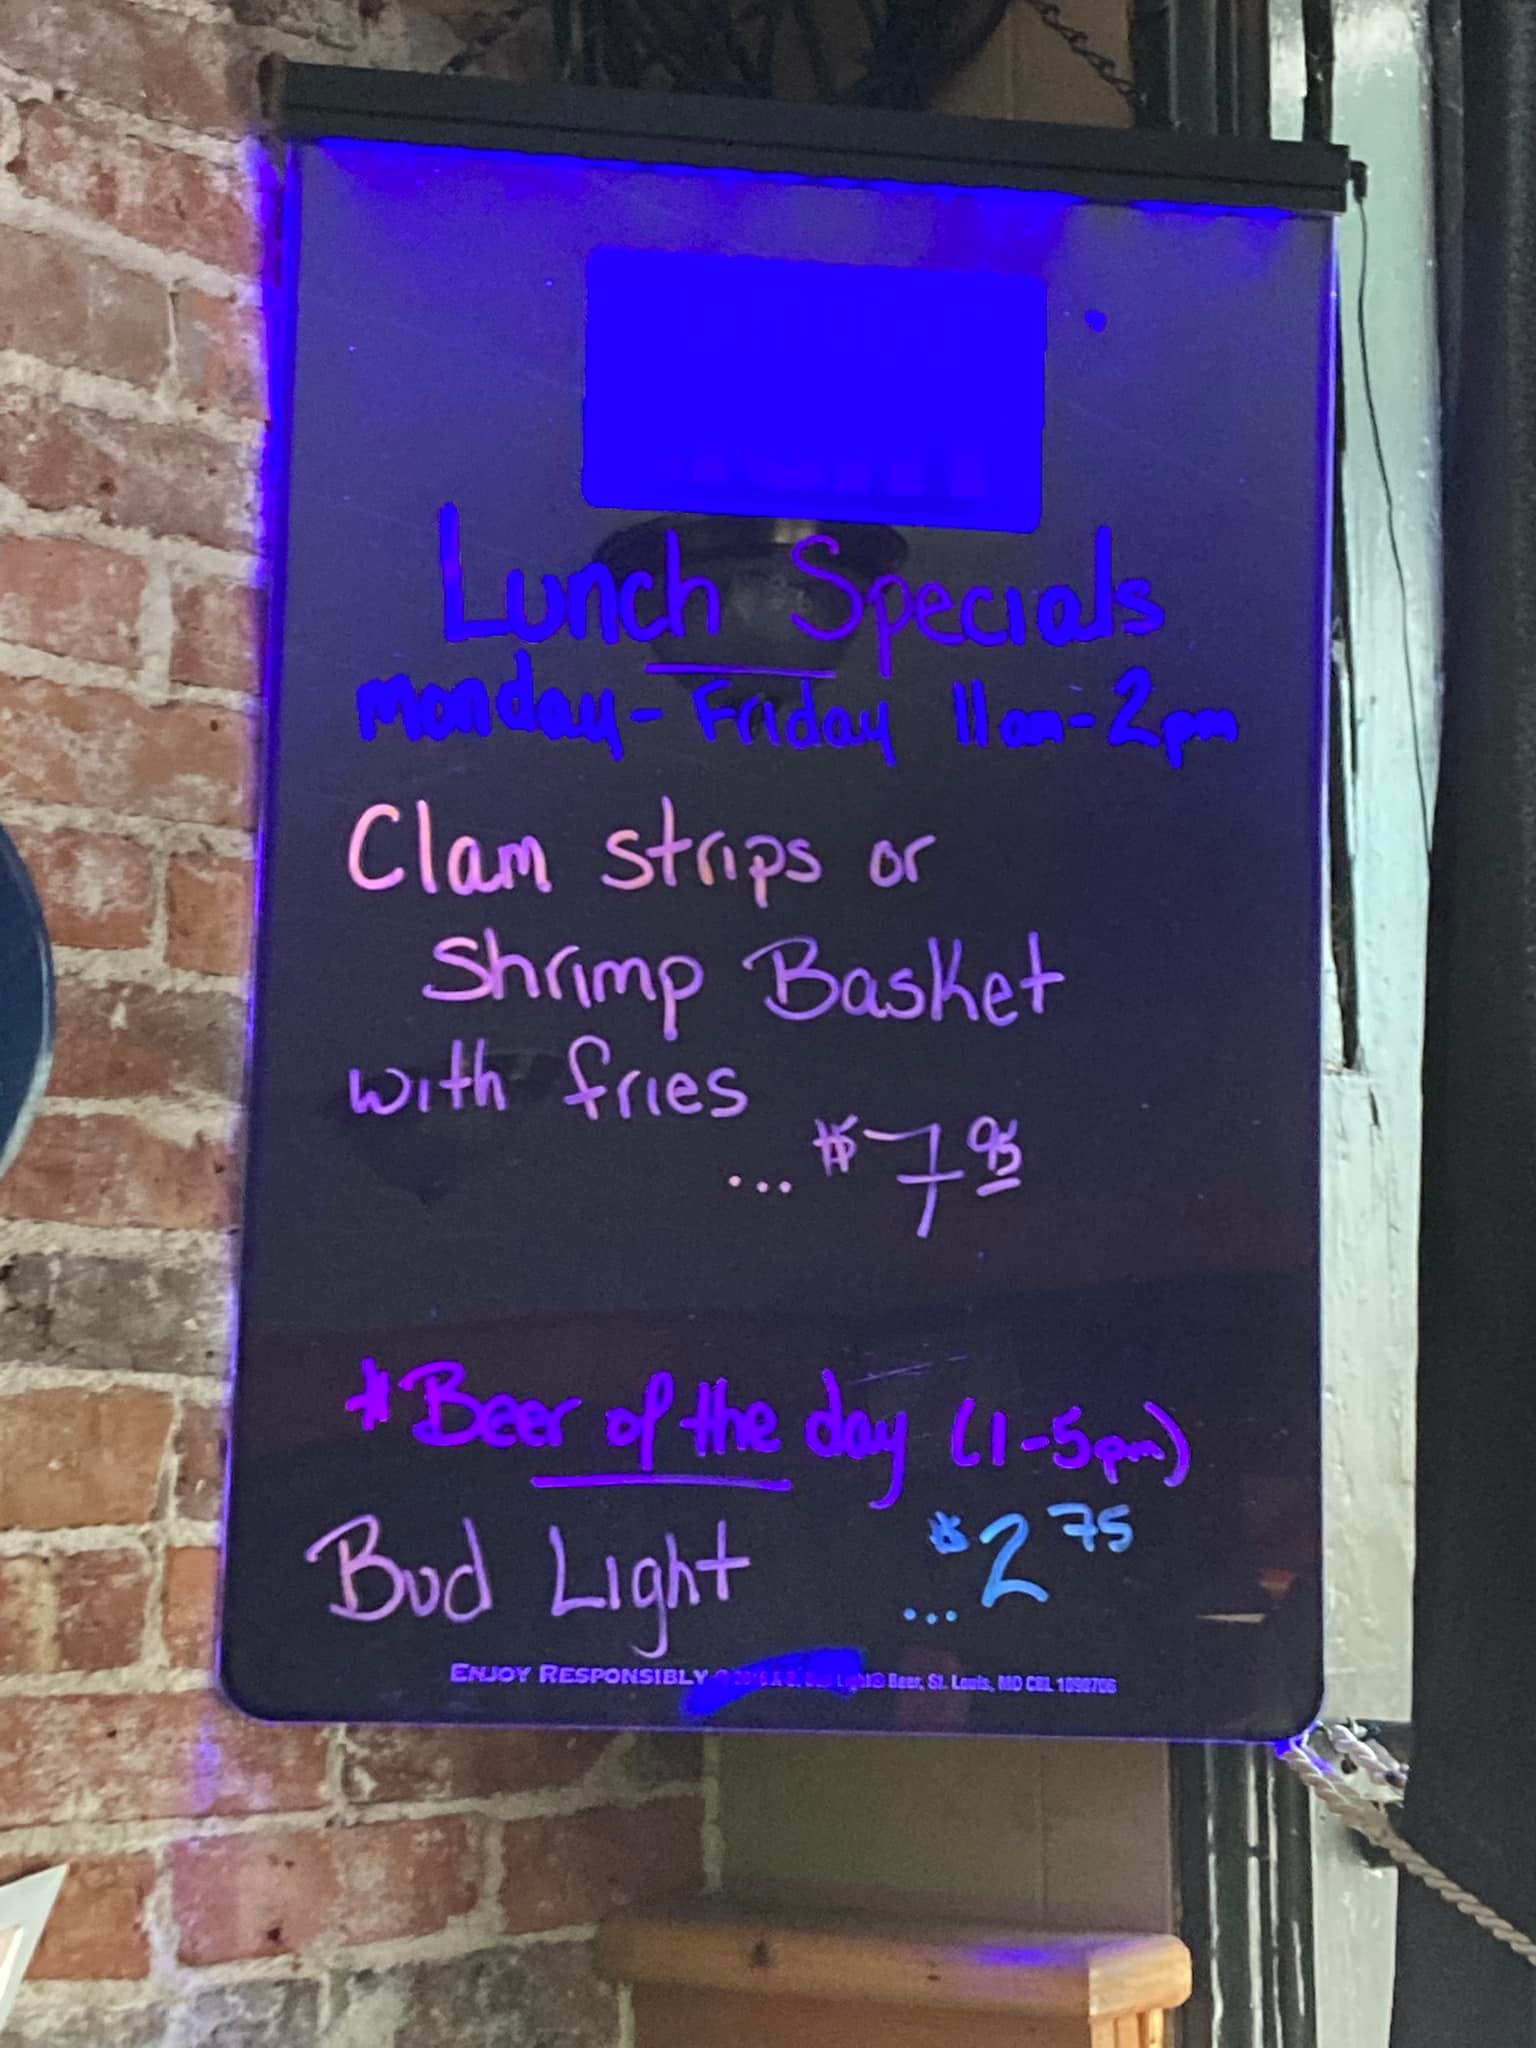 Lunch Specials
Monday - Friday 11am - 2pm
Clam strips or
Shrimp Basket
with fries
... $7.95
*Beer of the day (1-5pm)
Bud Light ... $2.75
ENJOY RESPONSIBLY Beer, St. Louis, MO CBL 1090706